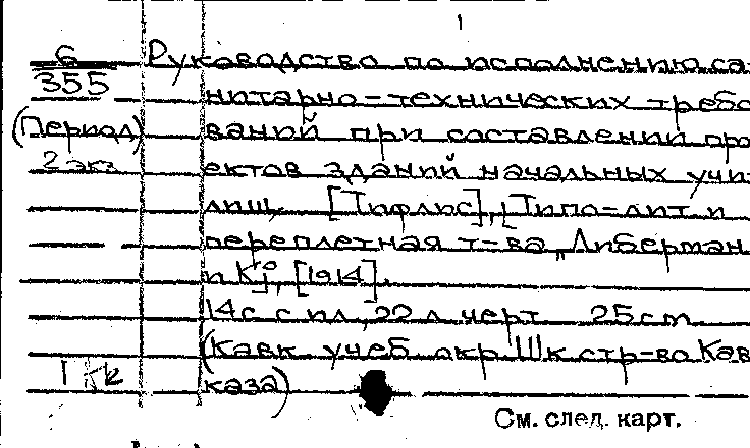 1
6
355
(Период)
2 экз
Руководство по исполнению са-
нитарно-технических требо-
ваний при составлении про-
ектов зданий начальных учи-
лищ. [Тифлис], Типо-лит и
переплетная т-ва „Либерман
и К°", [1914].
14 с с пл, 22 л черт 25 cm
(Кавк учеб окр Шк стр-во Кав-
каза)
См. след. карт.